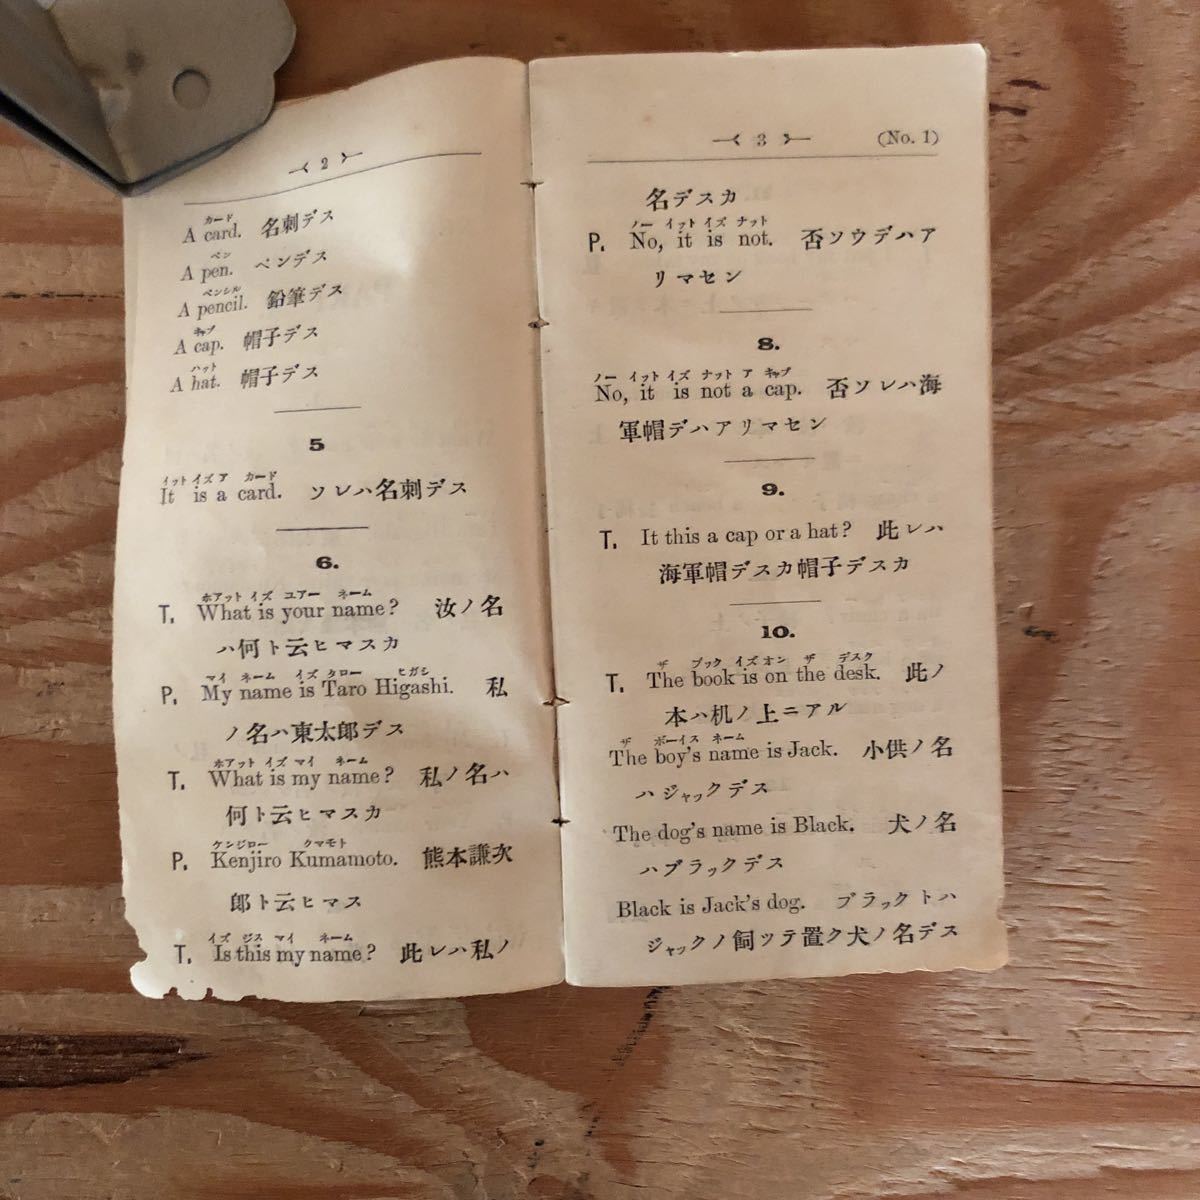 2
カード
A card. 名刺デス
ペン
A pen. ペンデス
ペンシル
A pencil. 鉛筆デス
キャプ
A cap. 帽子デス
ハット
A hat. 帽子デス
5
イット イズ ア カード
It is a card. ソレハ名刺デス
6.
ホアット イズ ユアー ネーム
T. What is your name? 汝ノ名
ハ何ト云ヒマスカ
マイ ネーム イズ タロー ヒガシ
P. My name is Taro Higashi. 私
ノ名ハ東太郎デス
ホアット イズ マイ ネーム
T. What is my name? 私ノ名ハ
何ト云ヒマスカ
ケンジロー クマモト
P. Kenjiro Kumamoto. 熊本謙次
郎ト云ヒマス
イズ ジス マイ ネーム
T. Is this my name? 此レハ私ノ
3 (No. 1)
名デスカ
ノー イット イズ ナット
P. No, it is not. 否ソウデハア
リマセン
8.
ノー イット イズ ナット ア キャプ
No, it is not a cap. 否ソレハ海
軍帽デハアリマセン
9.
T. It this a cap or a hat? 此レハ
海軍帽デスカ帽子デスカ
10.
ザ ブック イズ オン ザ デスク
T. The book is on the desk. 此ノ
本ハ机ノ上ニアル
ザ ボーイス ネーム
The boy's name is Jack. 小供ノ名
ハジャックデス
The dog's name is Black. 犬ノ名
ハブラックデス
Black is Jack's dog. ブラックトハ
ジャックノ飼ツテ置ク犬ノ名デス